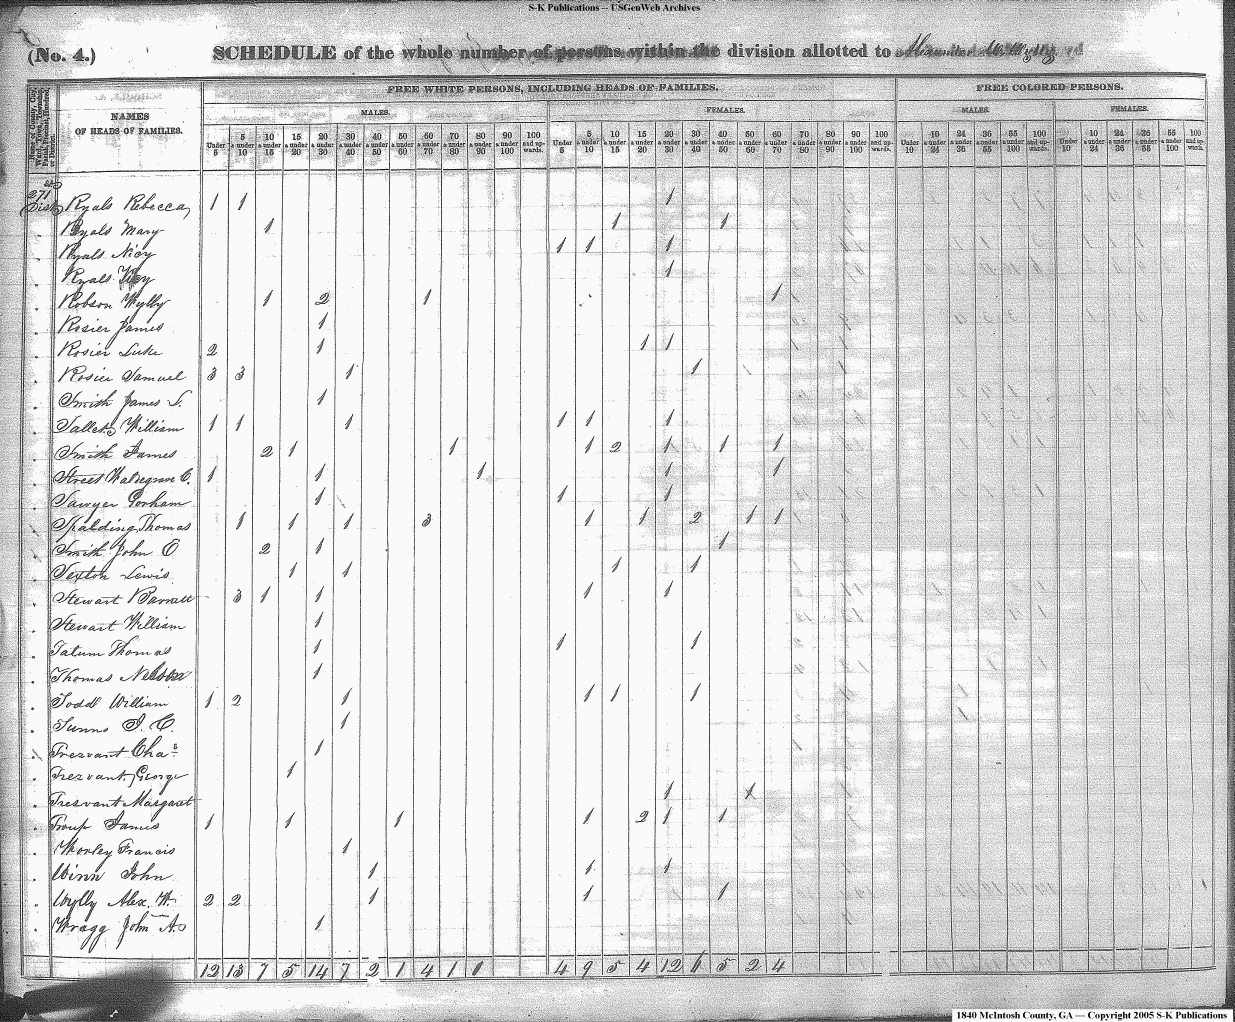 S-K Publications – USGenWeb Archives
(No. 4.) SCHEDULE of the whole number of persons within the division allotted to
FREE WHITE PERSONS, INCLUDING HEADS OF FAMILIES. FREE COLORED PERSONS.
NAMES OF HEADS OF FAMILIES. MALES. FEMALES. MALES. FEMALES.
Under 5 5 & under 10 10 & under 15 15 & under 20 20 & under 30 30 & under 40 40 & under 50 50 & under 60 60 & under 70 70 & under 80 80 & under 90 90 & under 100 100 and upwards. Under 5 5 & under 10 10 & under 15 15 & under 20 20 & under 30 30 & under 40 40 & under 50 50 & under 60 60 & under 70 70 & under 80 80 & under 90 90 & under 100 100 and upwards. Under 10 10 & under 24 24 & under 36 36 & under 55 55 & under 100 100 and upwards. Under 10 10 & under 24 24 & under 36 36 & under 55 55 & under 100 100 and upwards.
271st Dist Ryals Rebecca 1 1 1
Ryals Mary 1 1 1
Ryals Nicy 1 1 1
Ryals 1
Robson Wylly 1 2 1 1
Rosier James 1
Rosier Luke 2 1 1 1
Rosier Samuel 3 3 1 1
Smith James S. 1
Sallets William 1 1 1 1 1 1
Smith James 2 1 1 1 2 1 1 1
Street Waldegrave C. 1 1 1 1 1
Sawyer Gorham 1 1 1
Spalding Thomas 1 1 1 3 1 1 2 1 1
Smith John E 2 1 1
Sexton Lewis 1 1 1 1
Stewart Barratt 3 1 1 1 1
Stewart William 1
Tatum Thomas 1 1 1
Thomas Nelson 1
Todd William 1 2 1 1 1 1
Tunno J. C. 1
Trezvant Chas 1
Trezvant George 1
Tresvant Margaret 1 x
Troup James 1 1 1 1 2 1 1
Worley Francis 1
Winn John 1 1 1
Wylly Alex. W. 2 2 1 1 1
Wragg John A. 1
12 13 7 5 14 7 2 1 4 1 1 4 9 5 4 12 6 5 2 4
1840 McIntosh County, GA — Copyright 2005 S-K Publications